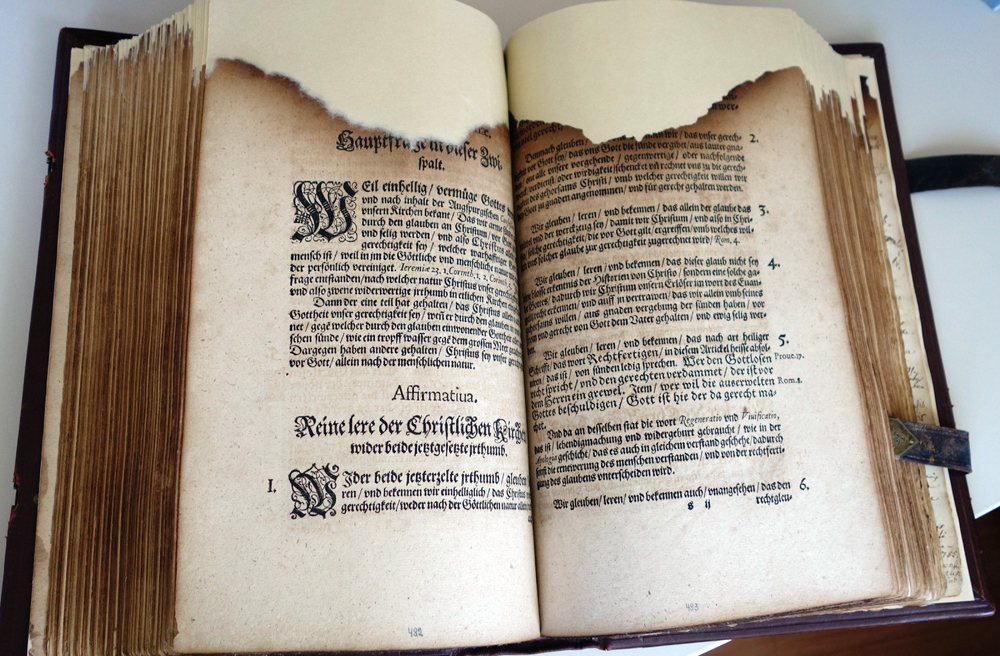 Hauptfrag in dieser Zwi-
spalt.
WEil einhellig / vermüge Gottes
vnd nach inhalt der Augspurgischen
vnsern Kirchen bekant / Das wir arme
durch den glauben an Christum / vor
vnd selig werden / vnd also Christus
gerechtigkeit sey / welcher warhafftiger
mensch ist / weil in jm die Göttliche vnd menschliche natur
der persönlich vereiniget. Ieremiæ 23. 1. Corinth. 1. 2. Corinth. 5.
frage entstanden / nach welcher natur Christus vnser gerechtigkeit
vnd also zwene widerwertige jrthumb in etlichen Kirchen
Dann der eine teil hat gehalten / das Christus allein
Gottheit vnser gerechtigkeit sey / weñ er durch den glauben in
net / gegẽ welcher durch den glauben einwonender Gottheit
schen sünde / wie ein tropff wasser gegẽ dem grossen Meer
Dargegen haben andere gehalten / Christus sey vnser
vor Gott / allein nach der menschlichen natur.
Affirmatiua.
Reine lere der Christlichen Kirchen
wider beide jetztgesetzte jrthumb.
I. WJder beide jetzterzelte jrthumb / gleuben
ren / vnd bekennen wir einhelliglich / das Christus
gerechtigkeit / weder nach der Göttlichen natur allein
482
Demnach gleuben / wir / das vnser gerech- 2.
vor Gott sey / das vns Gott die sünde vergibt / aus lauter gna-
alle vnsere vorgehende / gegenwertige / oder nachfolgende
verdienst / oder wirdigkeit / schencket vñ rechnet vns zu die gerech-
des gehorsams Christi / vmb welcher gerechtigkeit willen wir
Gott zu gnaden angenommen / vnd für gerecht gehalten werden.
Wir gleuben / leren / vnd bekennen / das allein der glaube das 3.
vnd der werckzeug sey / damit wir Christum / vnd also in Chri-
solche gerechtigkeit / die vor Gott gilt / ergreiffen / vmb welches wil-
solcher glaube zur gerechtigkeit zugerechnet wird / Rom. 4.
Wir gleuben / leren / vnd bekennen / das dieser glaub nicht sey 4.
blosse erkentnis der Historien von Christo / sondern eine solche ga-
Gottes / dadurch wir Christum vnsern Erlöser im wort des Euan-
recht erkennen / vnd auff jn vertrawen / das wir allein vmb seines
willen / aus gnaden vergebung der sünden haben / vor
vnd gerecht von Gott dem Vater gehalten / vnd ewig selig wer-
Wir gleuben / leren / vnd bekennen / das nach art heiliger 5.
Schrifft / das wort Rechtfertigen / in diesem Artickel heisse absol-
uiren / das ist / von sünden ledig sprechen. Wer den Gottlosen Prou. 17.
recht spricht / vnd den gerechten verdammet / der ist vor
dem Herrn ein grewel. Item / wer wil die auserwelten Rom. 8.
Gottes beschuldigen / Gott ist hie der da gerecht ma-
chet.
Vnd da an desselben stat die wort Regeneratio vnd Viuificatio,
ist / lebendigmachung vnd widergeburt gebraucht / wie in der
Apologia geschicht / das es auch in gleichem verstand geschehe / dadurch
sonst die ernewerung des menschen verstanden / vnd von der rechtferti-
gung des glaubens vnterscheiden wird.
Wir gleuben / leren / vnd bekennen auch / vnangesehen / das den 6.
s ij rechtgleu-
483